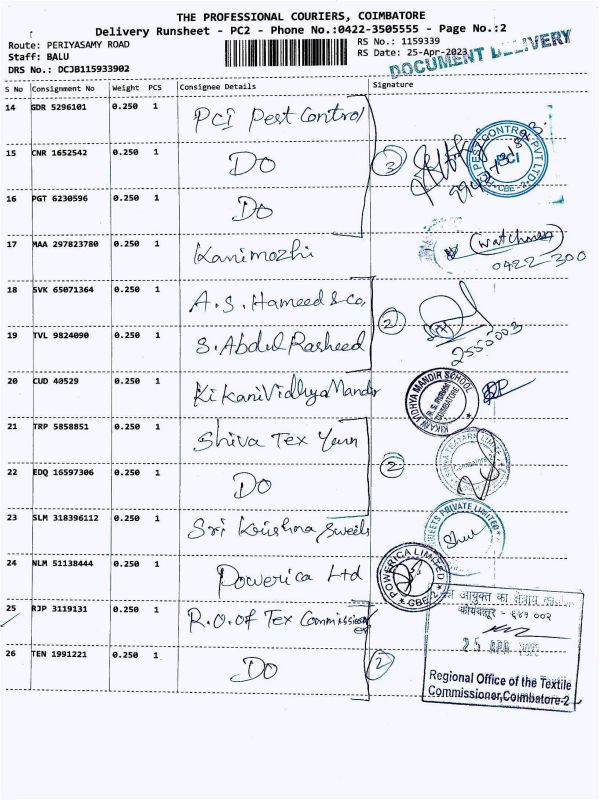 THE PROFESSIONAL COURIERS, COIMBATORE
Delivery Runsheet - PC2 - Phone No.:0422-3505555 - Page No.:2
Route: PERIYASAMY ROAD
Staff: BALU
DRS No.: DCJB115933902
RS No.: 1159339
RS Date: 25-Apr-2023
DOCUMENT DELIVERY
S No Consignment No Weight PCS Consignee Details Signature
14 GDR 5296101 0.250 1 PCI Pest Control
15 CNR 1652542 0.250 1 DO 3
PEST CONTROL PVT LTD
PCI
CBE-2
16 PGT 6230596 0.250 1 DO
17 MAA 297823780 0.250 1 Kanimozhi
(Watchman)
0422-300
18 SVK 65071364 0.250 1 A.S. Hameed & Co,
2
19 TVL 9824090 0.250 1 S. Abdul Rasheed
2555003
20 CUD 40529 0.250 1 Kikani Vidhya Mandir
KIKANI VIDHYA MANDIR SCHOOL
COIMBATORE
21 TRP 5858851 0.250 1 Shiva Tex Yarn
2
22 EDQ 16597306 0.250 1 DO
23 SLM 318396112 0.250 1 Sri Krishna Sweets
SWEETS PRIVATE LIMITED
24 NLM 51138444 0.250 1 Powerica Ltd
POWERICA LIMITED
CBE-2
25 RJP 3119131 0.250 1 R.O. of Tex Commissioner
आयुक्त का क्षेत्रीय
कोयम्बत्तूर - ६४१ ००२
26 TEN 1991221 0.250 1 DO 2
25 APR 2023
Regional Office of the Textile
Commissioner, Coimbatore-2